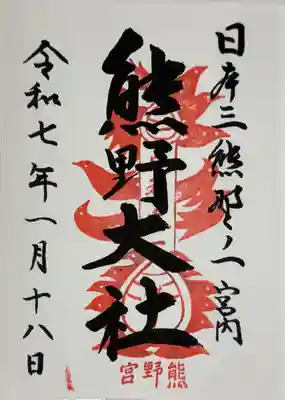 日本三熊野ノ一 宮内
熊野大社
熊野宮
令和七年一月十八日